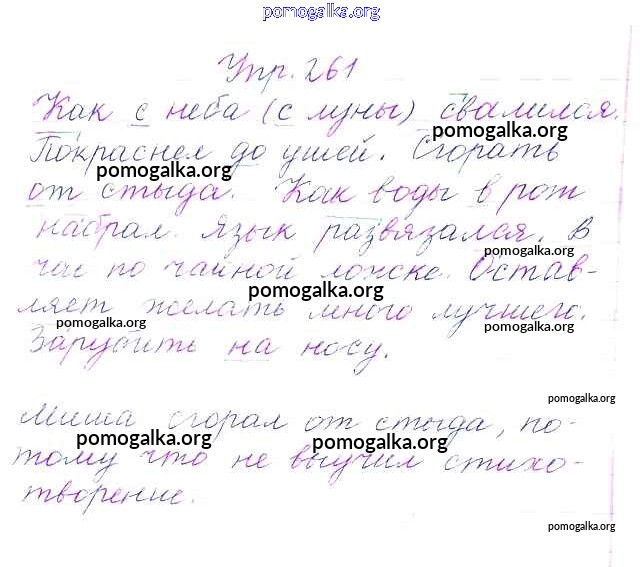 pomogalka.org
Упр. 261
Как с неба (с луны) свалился.
pomogalka.org
Покраснел до ушей. Сгорать
pomogalka.org
от стыда. Как воды в рот
набрал. Язык развязался. В
pomogalka.org
час по чайной ложке. Остав-
pomogalka.org
ляет желать много лучшего.
pomogalka.org
pomogalka.org
Зарубить на носу.
pomogalka.org
Миша сгорал от стыда, по-
pomogalka.org
pomogalka.org
тому что не выучил стихо-
творение.
pomogalka.org